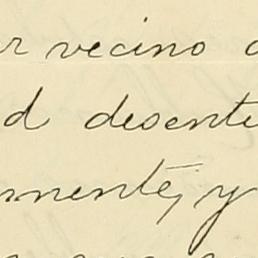 r vecino
d desente
mente, y